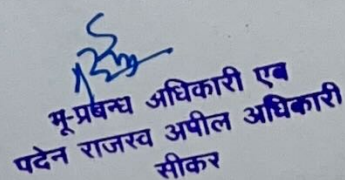 भू-प्रबन्ध अधिकारी एब
पदेन राजस्व अपील अधिकारी
सीकर